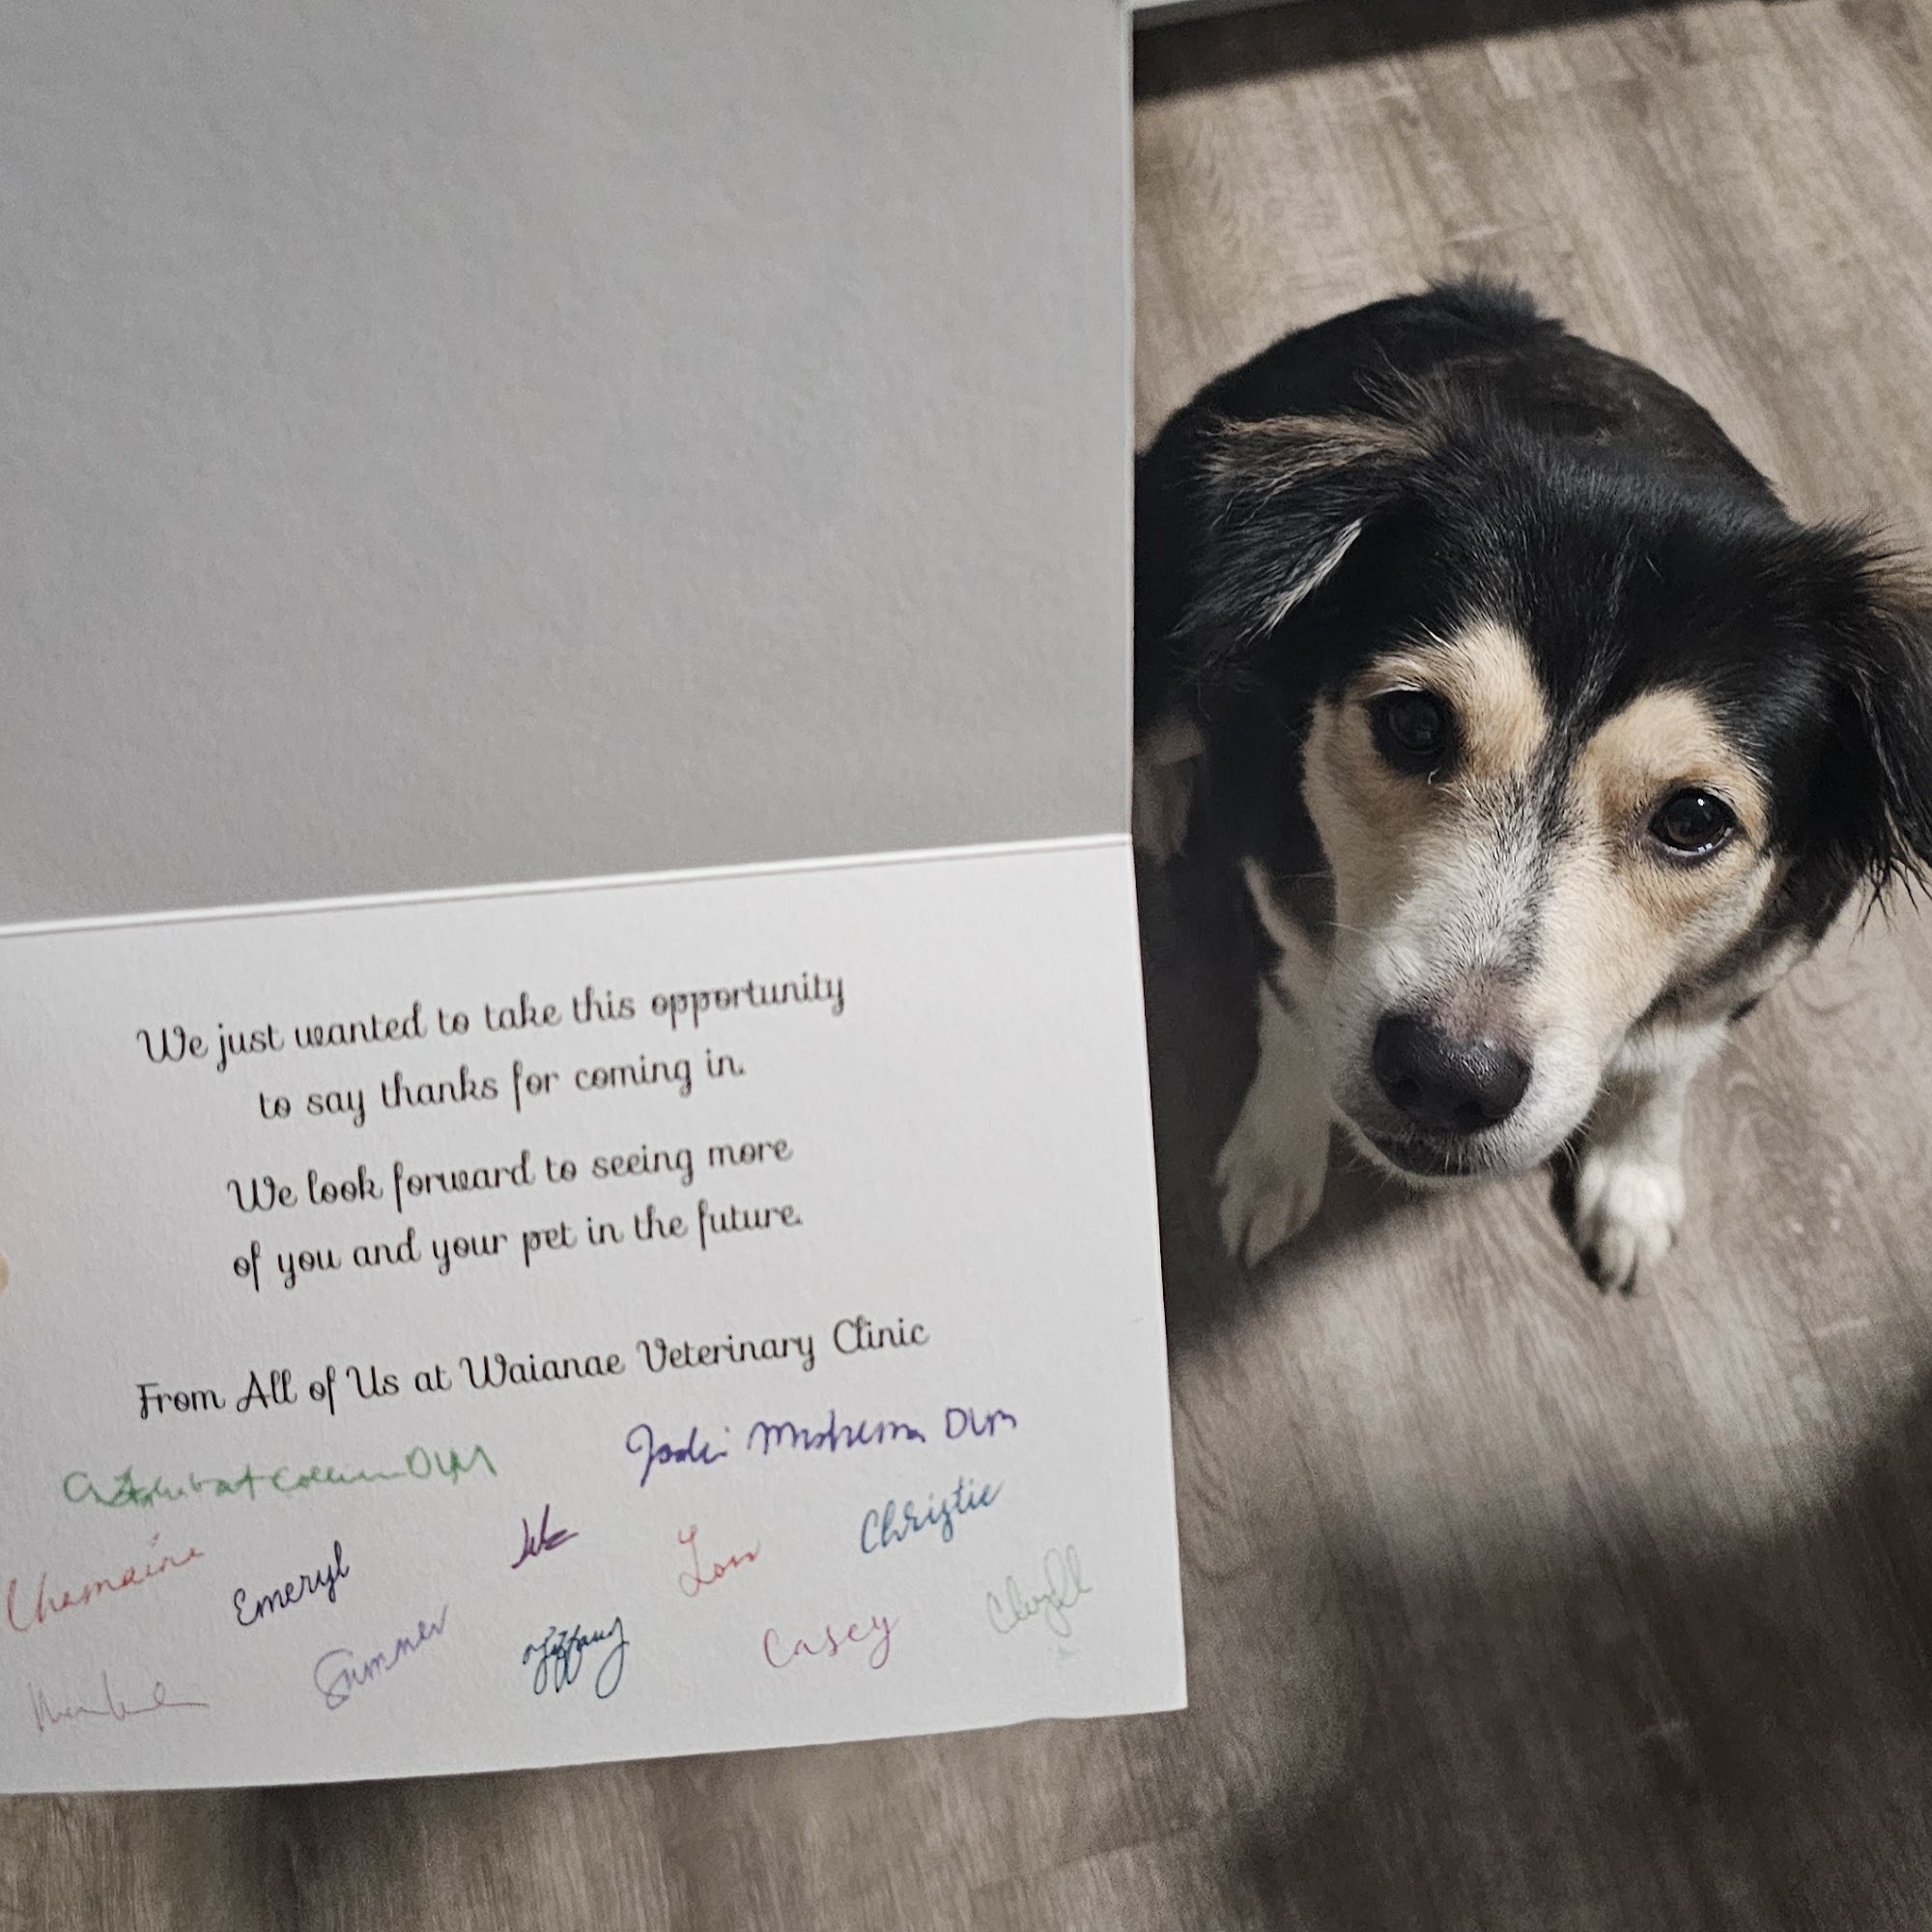 We just wanted to take this opportunity
to say thanks for coming in.
We look forward to seeing more
of you and your pet in the future.
From All of Us at Waianae Veterinary Clinic
DVM
DVM
Emeryl Christie
Summer Tiffany Casey